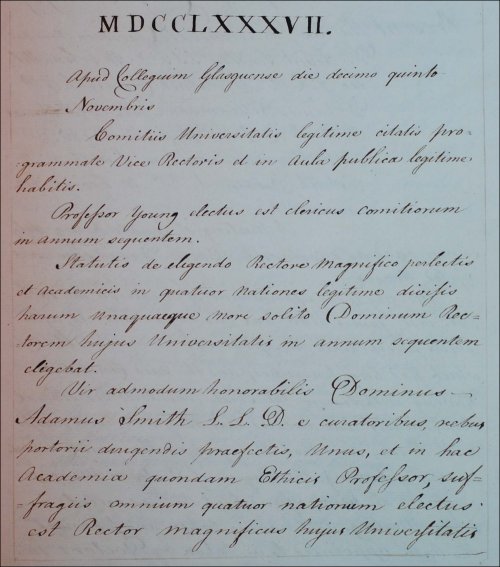 MDCCLXXXVII.
Apud Collegium Glasguense die decimo quinto
Novembris
Comitiis Universitatis legitime citatis pro-
-grammate Vice Rectoris et in Aula publica legitime
habitis.
Professor Young electus est clericus comitiorum
in annum sequentem.
Statutis de eligendo Rectore Magnifico perlectis
et Academicis in quatuor Nationes legitime divisis
harum Unaquaeque more solito Dominum Rec-
-torem hujus Universitatis in annum sequentem
eligebat.
Vir admodum honorabilis Dominus
Adamus Smith L. L. D. e curatoribus, rebus
portorii dirigendis praefectis, Unus, et in hac
Academia quondam Ethicis Professor, suf-
-fragiis omnium quatuor nationum electus
est Rector Magnificus hujus Universitatis